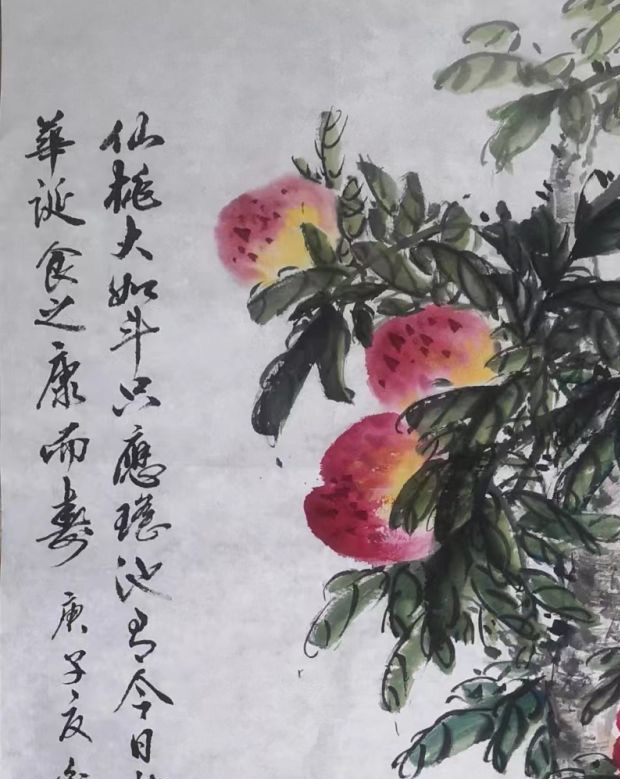 仙桃大如斗只應瑤池有今日
華誕食之康而壽 庚子夏